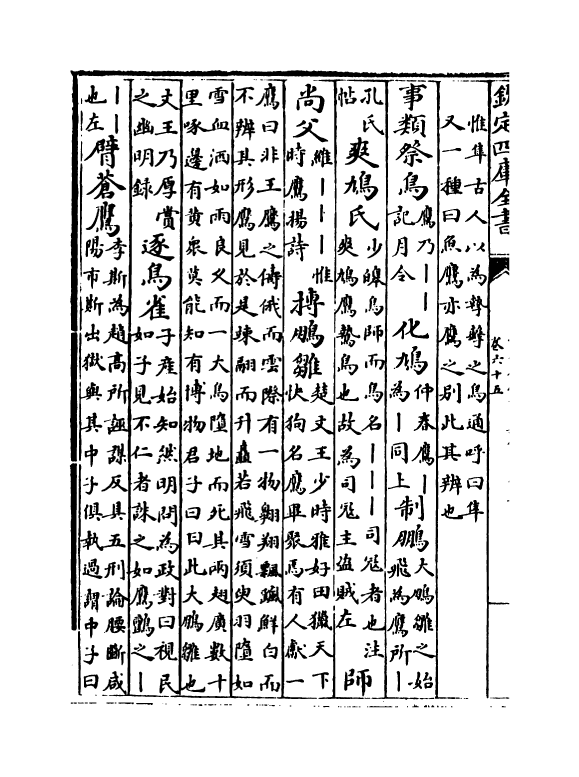 欽定四庫全書
卷六十五
惟隼古人以為鷙擊之鳥通呼曰隼
又一種曰魚鷹亦鷹之別此其辨也
事類祭鳥鷹乃丨丨
記月令化鳩仲春鷹丨
為丨同上制鵬大鵬雛之始
飛為鷹所丨
孔氏
帖爽鳩氏少皥鳥師而鳥名丨丨丨司冦者也注
爽鳩鷹鷙鳥也故為司冦主盗賊左師
尚父維丨丨丨惟
時鷹揚詩搏鵬雛楚文王少時雅好田獵天下
快狗名鷹畢聚焉有人獻一
鷹曰非王鷹之儔俄而雲際有一物翺翔飄颻鮮白而
不辨其形鷹見於是竦翮而升矗若飛雪須臾羽墮如
雪血洒如雨良乆而一大鳥墮地而死其兩翅廣數十
里啄邊有黄衆莫能知有博物君子曰曰此大鵬雛也
文王乃厚賞
之幽明録逐鳥雀子産始知然明問為政對曰視民
如子見不仁者誅之如鷹鸇之丨
丨丨
也左臂蒼鷹李斯為趙高所誣謀反具五刑論腰斷咸
陽市斯出獄與其中子俱執過謂中子曰